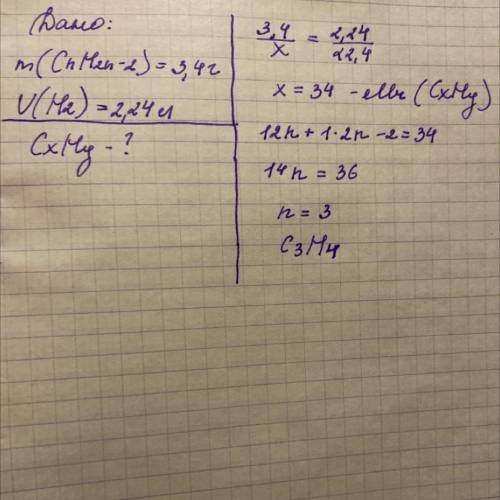 Дано:
m(CnH2n-2) = 3,4г
V(H2) = 2,24л
CxHy - ?
3,4/x = 2,24/22,4
x = 34 - Mr (CxHy)
12n + 1·2n - 2 = 34
14n = 36
n = 3
C3H4